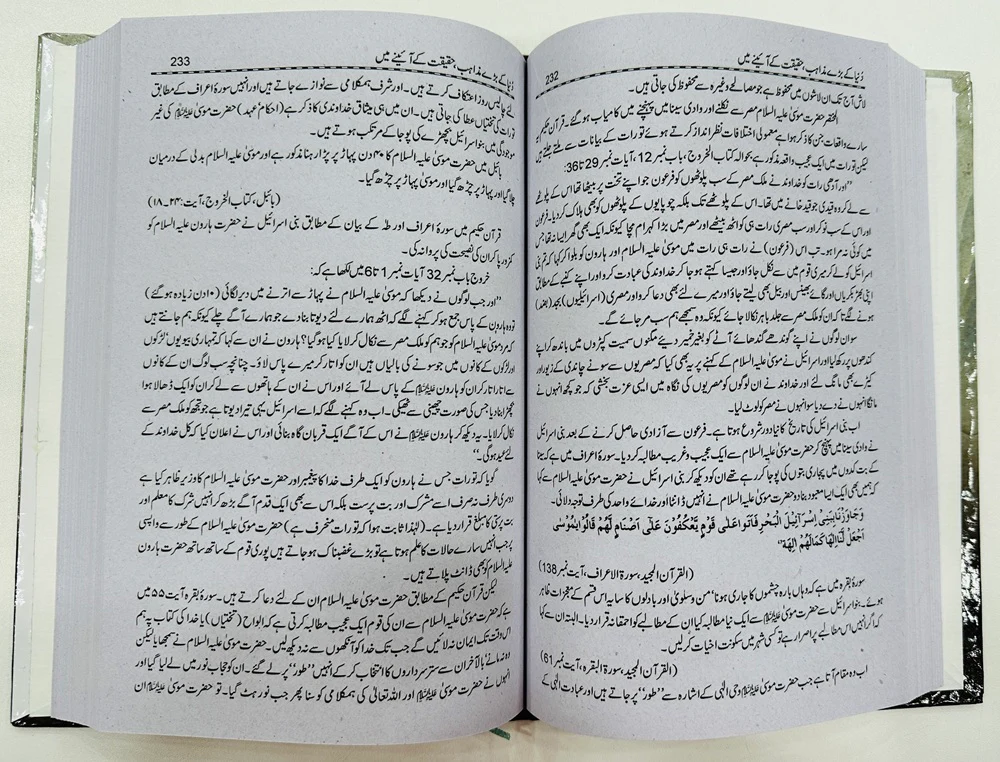 دُنیا کے بڑے مذاہب، حقیقت کے آئینے میں
232
لاش آج تک ان لاشوں میں محفوظ ہے جو مصالحے وغیرہ سے محفوظ کی جاتی ہیں۔
المختصر حضرت موسیٰ علیہ السلام مصر سے نکلنے اور وادی سینا میں پہنچنے میں کامیاب ہو گئے۔ قرآن حکیم
سارے واقعات جن کا ذکر ہوا ہے معمولی اختلافات نظر انداز کرتے ہوئے تورات کے بیانات سے ملتے جلتے ہیں
لیکن تورات میں ایک عجیب واقعہ مذکور ہے بحوالہ کتاب الخروج، باب نمبر 12، آیات نمبر 29 تا 36:
”اور آدھی رات کو خداوند نے ملک مصر کے سب پلوٹھوں کو فرعون جو اپنے تخت پر بیٹھا تھا اس کے پلوٹھے
سے لے کر وہ قیدی جو قید خانے میں تھا۔ اس کے پلوٹھے تک بلکہ چوپایوں کے پلوٹھوں کو بھی ہلاک کر دیا۔ فرعون
اور اس کے سب نوکر اور سب مصری رات ہی کو اٹھ بیٹھے اور مصر میں بڑا کہرام مچا کیونکہ ایک بھی گھر ایسا نہ تھا جس
میں کوئی نہ مرا ہو۔ تب اس (فرعون) نے رات ہی رات میں موسیٰ علیہ السلام اور ہارون کو بلوا کر کہا کہ تم بنی
اسرائیل کو لے کر میری قوم میں سے نکل جاؤ اور جیسا کہتے ہو جا کر خداوند کی عبادت کرو اور اپنے کہنے کے مطابق
اپنی بھیڑ بکریاں اور گائے بھینس اور بیل بھی لیتے جاؤ اور میرے لئے بھی دعا کرو اور مصری (اسرائیلیوں) بجد (بضد)
ہونے لگے تاکہ ان کو ملک مصر سے جلد باہر نکالا جائے کیونکہ وہ سمجھے ہم سب مر جائے گے۔
سو ان لوگوں نے اپنے گوندھے گندھائے آٹے کو بغیر خمیر دیئے مگنوں سمیت کپڑوں میں باندھ کر اپنے
کندھوں پر رکھ لیا اور اسرائیل نے موسیٰ علیہ السلام کے کہنے پر یہ بھی کیا کہ مصریوں سے سونے چاندی کے زیور اور
کپڑے بھی مانگ لئے اور خداوند نے ان لوگوں کو مصریوں کی نگاہ میں ایسی عزت بخشی کہ جو کچھ انہوں نے
مانگا انہوں نے دے دیا سو انہوں نے مصر کو لوٹ لیا۔
اب بنی اسرائیل کی تاریخ کا نیا دور شروع ہوتا ہے۔ فرعون سے آزادی حاصل کرنے کے بعد بنی اسرائیل
نے وادی سینا میں پہنچ کر حضرت موسیٰ علیہ السلام سے ایک عجیب و غریب مطالبہ کر دیا۔ سورۃ اعراف میں ہے کہ سینا
کے بت کدوں میں پجاری بتوں کی پوجا کر رہے تھے ان کو دیکھ کر بنی اسرائیل نے حضرت موسیٰ علیہ السلام سے کہا
کہ ہمیں بھی ایک ایسا معبود بنا دو حضرت موسیٰ علیہ السلام نے انہیں ڈانٹا اور خدائے واحد کی طرف توجہ دلائی۔
وَجَاوَزْنَا بِبَنِیْ اِسْرَآئِیْلَ الْبَحْرَ فَاَتَوْا عَلٰی قَوْمٍ یَّعْکُفُوْنَ عَلٰی اَصْنَامٍ لَّهُمْ قَالُوْا یٰمُوْسٰی
اجْعَلْ لَّنَا اِلٰهًا کَمَا لَهُمْ اٰلِهَةٌ
(القرآن المجید، سورۃ الاعراف، آیت نمبر 138)
سورۃ بقرہ میں ہے کہ وہاں بارہ چشموں کا جاری ہونا ”من و سلویٰ“ اور بادلوں کا سایہ اس قسم کے معجزات ظاہر
ہوئے۔ بنو اسرائیل نے حضرت موسیٰ ﷺ سے ایک نیا مطالبہ کیا ان کے مطالبے کو احمقانہ قرار دیا۔ البتہ ان سے کہا
کہ اگر انہیں اس مطالبے پر اصرار ہے تو کسی شہر میں سکونت اختیار کر لیں۔
(القرآن المجید، سورۃ البقرہ، آیت نمبر 61)
اب وہ مقام آتا ہے جب حضرت موسیٰ ﷺ وحی الٰہی کے اشارہ سے ”طور“ پر جاتے ہیں اور عبادت الٰہی کے
دُنیا کے بڑے مذاہب، حقیقت کے آئینے میں
233
لئے چالیس روز اعتکاف کرتے ہیں۔ اور شرف ہمکلامی سے نوازے جاتے ہیں اور انہیں سورۃ اعراف کے مطابق
تورات کی تختیاں عطا کی جاتی ہیں۔ ان میں ہی میثاق خداوندی کا ذکر ہے (احکام عہد) حضرت موسیٰ ﷺ کی غیر
موجودگی میں بنو اسرائیل بچھڑے کی پوجا کے مرتکب ہوتے ہیں۔
بائبل میں حضرت موسیٰ علیہ السلام کا ۴۰ دن پہاڑ پر پڑا رہنا مذکور ہے اور موسیٰ علیہ السلام بدلی کے درمیان
چلا گیا اور پہاڑ پر چڑھ گیا اور موسیٰ پہاڑ پر چڑھ گیا۔
(بائبل، کتاب الخروج، آیت: ۲۴۔۱۸)
قرآن حکیم میں سورۃ اعراف اور طٰہٰ کے بیان کے مطابق بنی اسرائیل نے حضرت ہارون علیہ السلام کو
کمزور پا کر ان کی نصیحت کی پروا نہ کی۔
خروج باب نمبر 32 آیات نمبر 1 تا 6 میں لکھا ہے کہ:
”اور جب لوگوں نے دیکھا کہ موسیٰ علیہ السلام نے پہاڑ سے اترنے میں دیر لگائی (۱۰ دن زیادہ ہو گئے)
تو وہ ہارون کے پاس جمع ہو کر کہنے لگے کہ اٹھ ہمارے لئے دیوتا بنا دے جو ہمارے آگے چلے کیونکہ ہم جانتے ہیں
کہ مرد موسیٰ علیہ السلام کو جو ہم کو ملک مصر سے نکال کر لایا کیا ہو گیا؟ ہارون نے ان سے کہا کہ تمہاری بیویوں لڑکوں
اور لڑکوں کے کانوں میں جو سونے کی بالیاں ہیں ان کو اتار کر میرے پاس لاؤ۔ چنانچہ سب لوگ ان کے کانوں
سے اتار اتار کر ان کو ہارون ﷺ کے پاس لے آئے اور اس نے ان کے ہاتھوں سے لے کر ان کو ایک ڈھالا ہوا
بچھڑا بنا دیا جس کی صورت چھینی سے ٹھیک کی۔ اب وہ کہنے لگے کہ اے اسرائیل یہی تیرا دیوتا ہے جو تجھ کو ملک مصر سے
نکال کر لایا۔ یہ دیکھ کر ہارون ﷺ نے اس کے آگے ایک قربان گاہ بنائی اور اس نے اعلان کیا کہ کل خداوند کے
لئے عید ہو گی۔“
گویا کہ تورات جس نے ہارون کو ایک طرف خدا کا پیغمبر اور حضرت موسیٰ علیہ السلام کا وزیر ظاہر کیا ہے
دوسری طرف نہ صرف اسے مشرک اور بت پرست بلکہ اس سے بھی ایک قدم آگے بڑھ کر انہیں شرک کا معلم اور
بت پرستی کا مبلغ قرار دیا ہے۔ (لہٰذا ثابت ہوا کہ تورات منحرف ہے) حضرت موسیٰ علیہ السلام کے طور سے واپسی
پر جب انہیں سارے حالات کا علم ہوتا ہے تو بڑے غضبناک ہو جاتے ہیں پوری قوم کے ساتھ ساتھ حضرت ہارون
علیہ السلام کو بھی ڈانٹ پلاتے ہیں۔
لیکن قرآن حکیم کے مطابق حضرت موسیٰ علیہ السلام ان کے لئے دعا کرتے ہیں۔ سورۃ بقرہ آیت ۵۵ میں
ہے کہ حضرت موسیٰ علیہ السلام سے ان کی قوم ایک عجیب مطالبہ کرتی ہے کہ الواح (تختیاں) یا خدا کی کتاب پہ ہم
اس وقت تک ایمان نہ لائیں گے جب تک خدا کو آنکھوں سے نہ دیکھ لیں۔ حضرت موسیٰ علیہ السلام نے سمجھایا لیکن
وہ نہ مانے بالآخر ان سے ستر سرداروں کا انتخاب کر کے انہیں ”طور“ پر لے گئے۔ ان کو حجاب نور میں لے لیا گیا اور
انہوں نے حضرت موسیٰ ﷺ اور اللہ تعالیٰ کی ہمکلامی کو سنا پھر جب نور ہٹ گیا۔ تو حضرت موسیٰ ﷺ ان